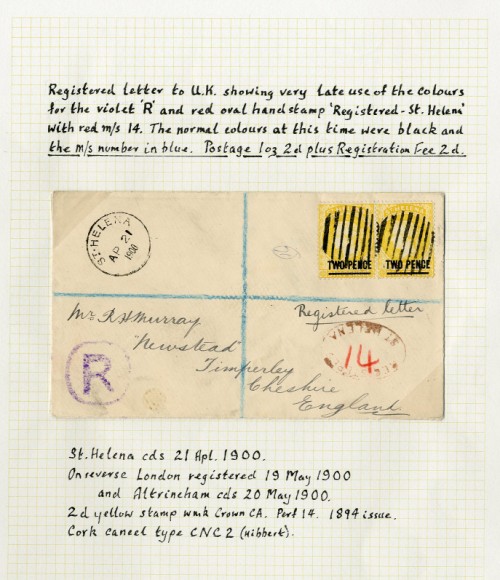 Registered letter to U.K. showing very late use of the colours
for the violet 'R' and red oval handstamp 'Registered - St. Helena'
with red m/s 14. The normal colours at this time were black and
the m/s number in blue. Postage 1oz 2d plus Registration Fee 2d.
ST. HELENA
AP 21
1900
TWO PENCE TWO PENCE
Registered letter
Mrs R H Murray
"Newstead"
Timperley
Cheshire
England
ST HELENA
14
R
St. Helena cds 21 Apl. 1900.
On reverse London registered 19 May 1900
and Altrincham cds 20 May 1900.
2d yellow stamp wmk Crown CA. Perf 14. 1894 issue.
Cork cancel type CNC 2 (Hibbert).